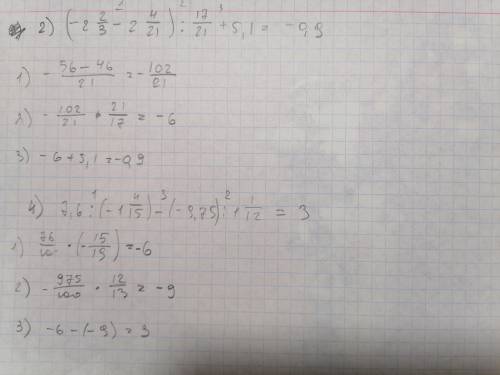 2) (-2 2/3 - 2 4/21) : 17/21 + 5,1 = -0,9
1) - 56-46/21 = - 102/21
2) - 102/21 · 21/17 = -6
3) -6 + 5,1 = -0,9
4) 7,6 : (-1 4/15) - (-9,75) : 1 1/12 = 3
1) 76/100 · (-15/19) = -6
2) - 975/100 · 12/13 = -9
3) -6 - (-9) = 3